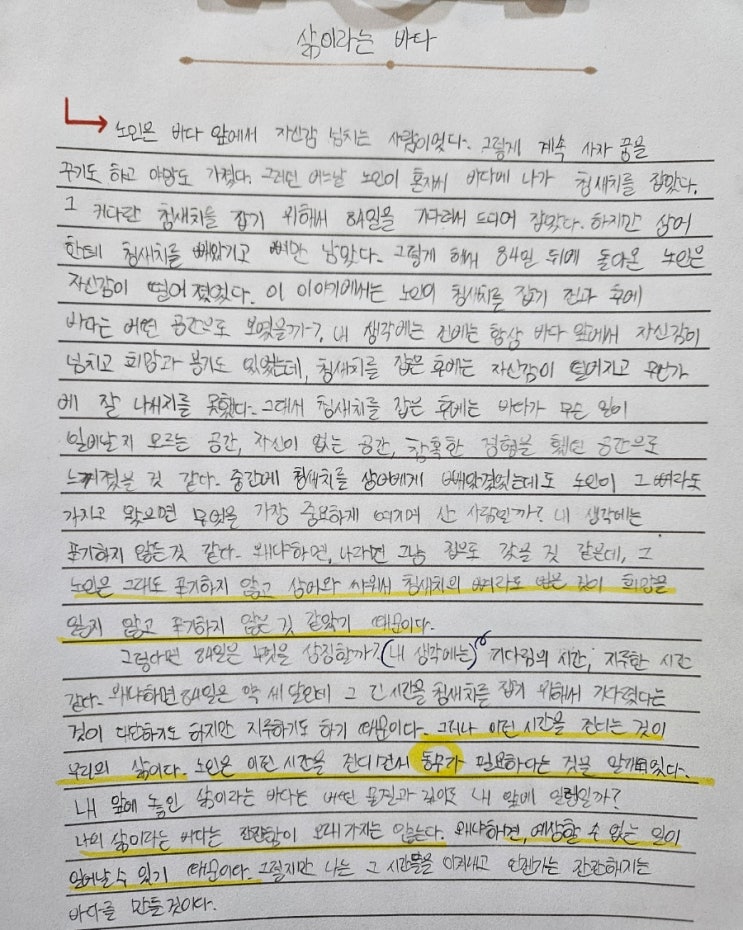 삶이라는 바다
노인은 바다 앞에서 자신감 넘치는 사람이었다. 그렇게 계속 사자 꿈을
꾸기도 하고 야망도 가졌다. 그러던 어느날 노인이 혼자서 바다에 나가 청새치를 잡았다.
그 커다란 청새치을 잡기 위해서 84일을 기다려서 드디어 잡았다. 하지만 상어
한테 청새치를 빼앗기고 뼈만 남았다. 그렇게 해서 84일 뒤에 돌아온 노인은
자신감이 떨어졌었다. 이 이야기에서는 노인이 청새치를 잡기 전과 후에
바다는 어떤 공간으로 보였을까? 내 생각에는 전에는 항상 바다 앞에서 자신감이
넘치고 희망과 용기도 있었는데, 청새치를 잡은 후에는 자신감이 떨어지고 무언가
에 잘 나서지를 못했다. 그래서 청새치를 잡은 후에는 바다가 무슨 일이
일어날지 모르는 공간, 자신이 없는 공간, 참혹한 경험을 했던 공간으로
느껴졌을 것 같다. 중간에 청새치를 상어에게 빼앗겼었는데도 노인이 그 뼈라도
가지고 왔으면 무엇을 가장 중요하게 여기며 산 사람일까? 내 생각에는
포기하지 않는것 같다. 왜냐하면, 나라면 그냥 집으로 갔을 것 같은데, 그
노인은 그래도 포기하지 않고 상어와 싸워서 청새치의 뼈라도 얻은 것이 희망을
잃지 않고 포기하지 않은 것 같았기 때문이다.
그렇다면 84일은 무엇을 상징할까? (내 생각에는) 기다림의 시간, 지루한 시간
같다. 왜냐하면 84일은 약 세 달인데 그 긴 시간을 청새치를 잡기 위해서 기다렸다는
것이 대단하기도 하지만 지루하기도 하기 때문이다. 그러나 이런 시간을 견디는 것이
우리의 삶이다. 노인은 이런 시간을 견디면서 동무가 필요하다는 것을 알게되었다.
내 앞에 놓인 삶이라는 바다는 어떤 물결과 깊이로 내 앞에 일렁일까?
나의 삶이라는 바다는 잔잔함이 오래 가지는 않는다. 왜냐하면, 예상할 수 없는 일이
일어날 수 있기 때문이다. 그렇지만 나는 그 시간들을 이겨내고 언젠가는 잔잔해지는
바다를 만들 것이다.